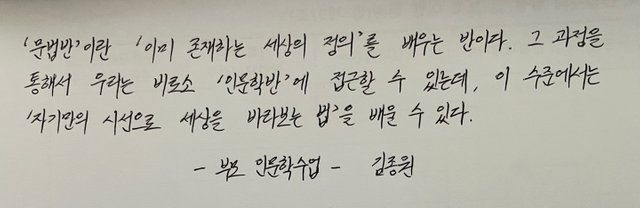 ‘문법반’이란 ‘이미 존재하는 세상의 정의’를 배우는 반이다. 그 과정을
통해서 우리는 비로소 ‘인문학반’에 접근할 수 있는데, 이 수준에서는
‘자기만의 시선으로 세상을 바라보는 법’을 배울 수 있다.
- 부모 인문학수업 - 김종원